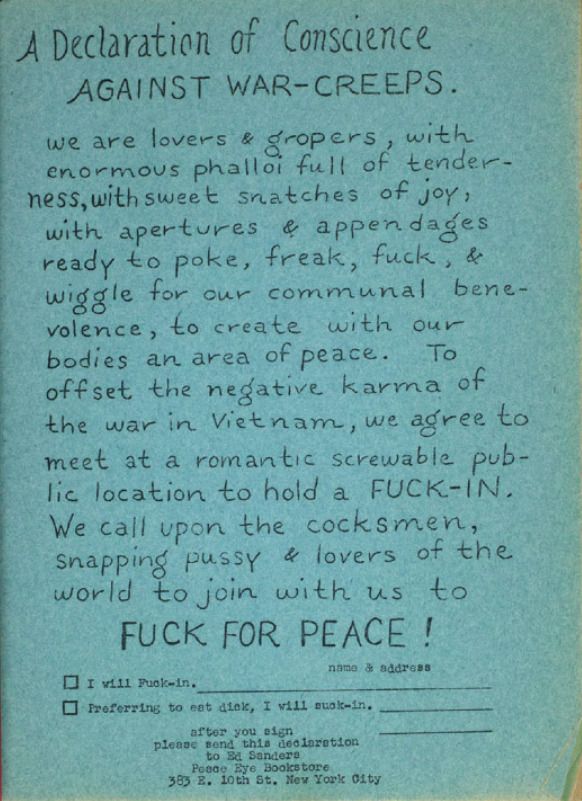 A Declaration of Conscience
AGAINST WAR-CREEPS.
we are lovers & gropers, with
enormous phalloi full of tender-
ness, with sweet snatches of joy,
with apertures & appendages
ready to poke, freak, fuck, &
wiggle for our communal bene-
volence, to create with our
bodies an area of peace. To
offset the negative karma of
the war in Vietnam, we agree to
meet at a romantic screwable pub-
lic location to hold a FUCK-IN.
We call upon the cocksmen,
snapping pussy & lovers of the
world to join with us to
FUCK FOR PEACE!
name & address
I will Fuck-in.
Preferring to eat dick, I will suck-in.
after you sign
please send this declaration
to Ed Sanders
Peace Eye Bookstore
383 E. 10th St. New York City